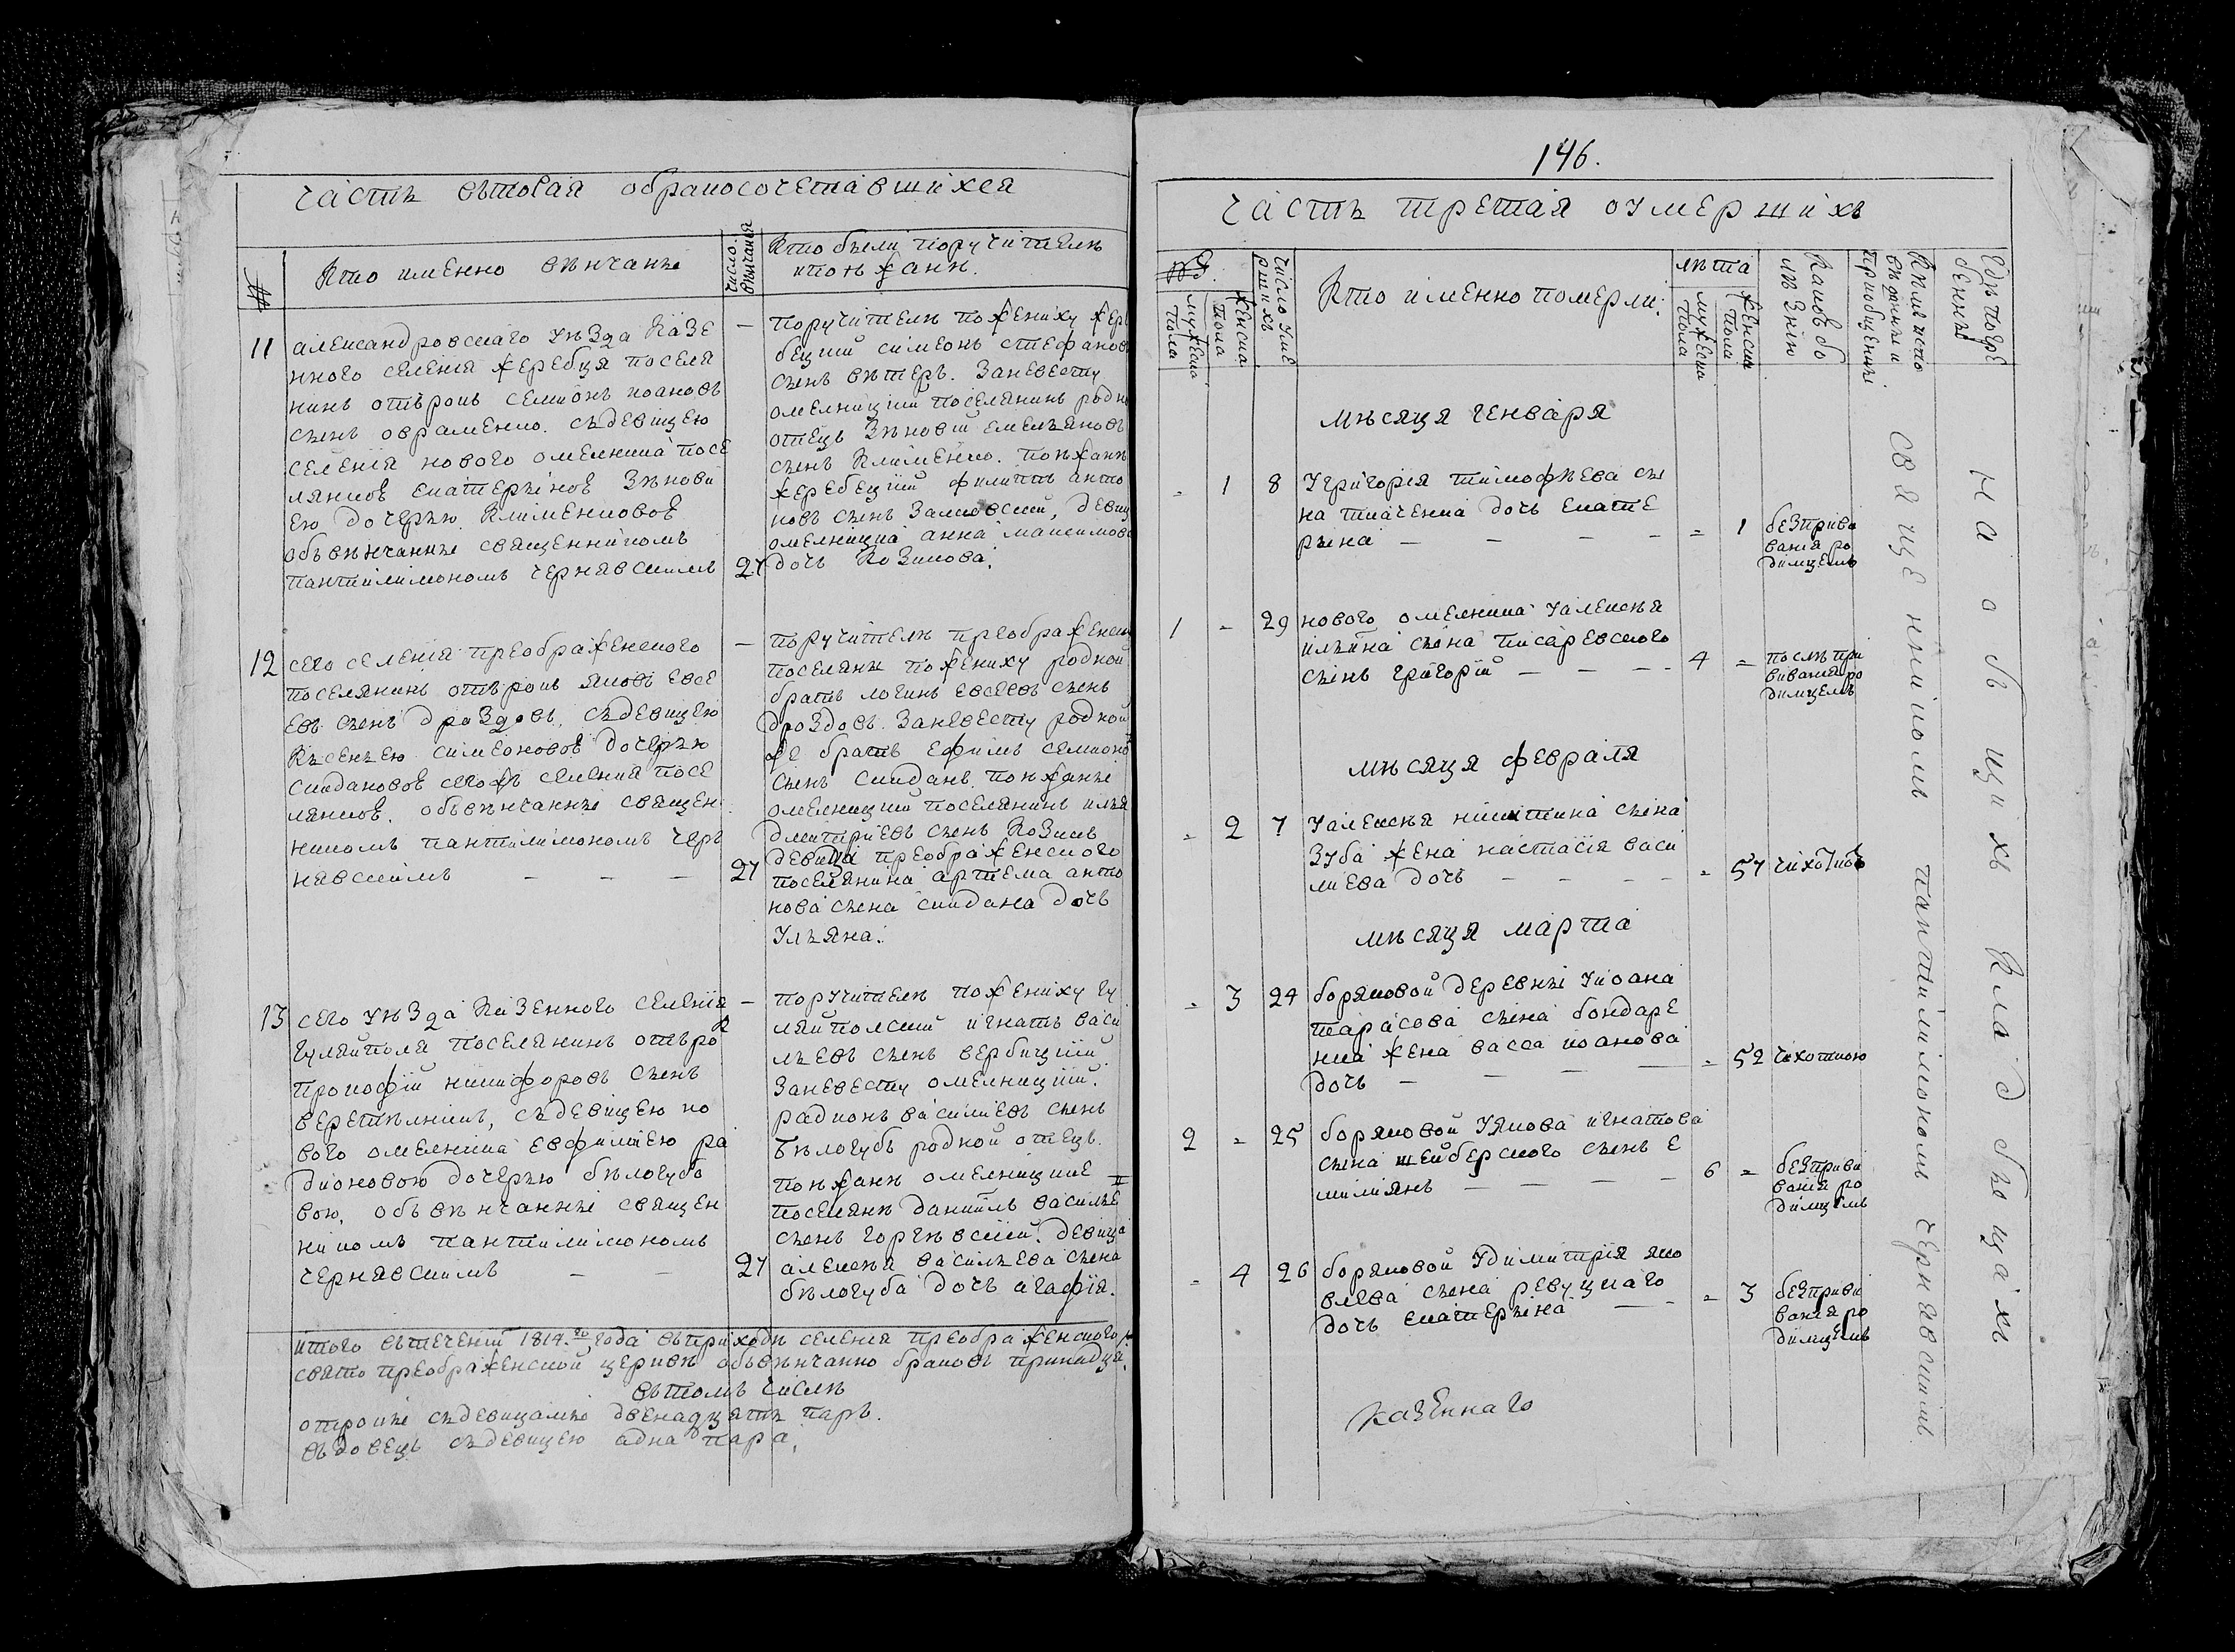 часть вътовая обракосочетавшихся
№
Кто именно венчаны
число венчания
Кто были поручители
и поѣзжанѣ.
11
александровскаго уѣзда казе
нного селенія жеребця поселя
нинъ отърокъ семионъ иоановъ
сынъ овраменко. съдевицею
селенія нового омелника посе
лянков екатерынов зѣнови
ею дочерью клименковов
объвѣнчанны священникомъ
пантилимономъ чернявскимъ
27
— поручители пожениху жере
бецкий симеонъ стефановъ
сынъ вѣтеръ. заневесту
омелницкий поселянинъ родной
отецъ зѣновий емельяновъ
сынъ клименко. поѣжанѣ
жеребецкий филиппъ анто
новъ сынъ залковский, девица
омелницка анна максимова
дочь козикова.
12
сего селенія преображенского
поселянинъ отърокъ яковъ евсе
евъ сынъ дроздовъ. съдевицею
къ сеньею симеоновов дочерью
скидановов сегожъ селения посе
лянков. объвѣнчанны священ
никомъ пантилимономъ черъ
нявскимъ — — —
27
— поручители преображенски
поселяны пожениху родной
братъ логинъ евсеевъ сынъ
дроздовъ. заневесту родной
же братъ ефимъ семионов
сынъ скиданъ. поѣжаны
омелницкий поселянинъ илья
дмитриевъ сынъ козикъ
девица преображенского
поселянина артема анто
нова сына скидана дочь
ульяна.
13
сего уѣзда казенного селения
гуляйполя поселянинъ отъро
к
прокофий никифоровъ сынъ
веретѣлникъ, съдевицею но
вого омелника евфимиею ра
дионовою дочерью бѣлогубо
вою. объвѣнчанны священ
никомъ пантилимономъ
чернявскимъ — —
27
— поручители пожениху гу
ляйполский игнатъ васи
льевъ сынъ вербицкий.
заневесту омелницкий.
радионъ василиевъ сынъ
бѣлогубъ родной отецъ.
поѣжанѣ омелницкие
поселянѣ даниилъ василье
сынъ горѣвский. девица
алексѣя васильева сына
бѣлогуба дочь агафія.
итого вътечении 1814.го года въприходѣ селения преображенского
свято преображенской церквѣ объвѣнчанно браковъ тринадца.
вътомъ числѣ
отроки съдевицами двенадцать паръ.
въдовецъ съдевицею адна пара.
146.
часть третая оумершихъ
№
мужеска пола
женска пола
число умершихъ
Кто именно померли.
лѣта
мужеска пола
женска пола
Каковъ болѣзнію
Кѣм исповѣданны и приобщенны
Гдѣ погребенны
мѣсяця генваря
= 1 8 у григорія тимофѣева сы
на ткаченка дочь екате
рына — — — — = 1 безприви
вания ро
димцемъ
1 = 29 нового омелника у алексѣя
ильина сына писаревского
сынъ григорій — — — 4 = послѣ при
вивания ро
димцемъ
мѣсяця февраля
= 2 7 у алексѣя никитина сына
зуба жена настасія васи
лиева дочь — — — — = 57 чихоткою
мѣсяця марта
= 3 24 боряковой деревны у иоана
тарасова сына бондаре
нка жена васса иоанова
дочь — — — — = 52 чихоткою
2 = 25 боряковой у якова игнатова
сына шейберского сынъ е
милиянъ — — — — 6 = безприви
вания ро
димцемъ
= 4 26 боряковой у димитрія яко
влева сына ревуцкаго
дочь екатерына — — = 3 безприви
вания ро
димцемъ
священникомъ пантилимономъ чернявскимъ
на общихъ кладбыщахъ
казеннаго